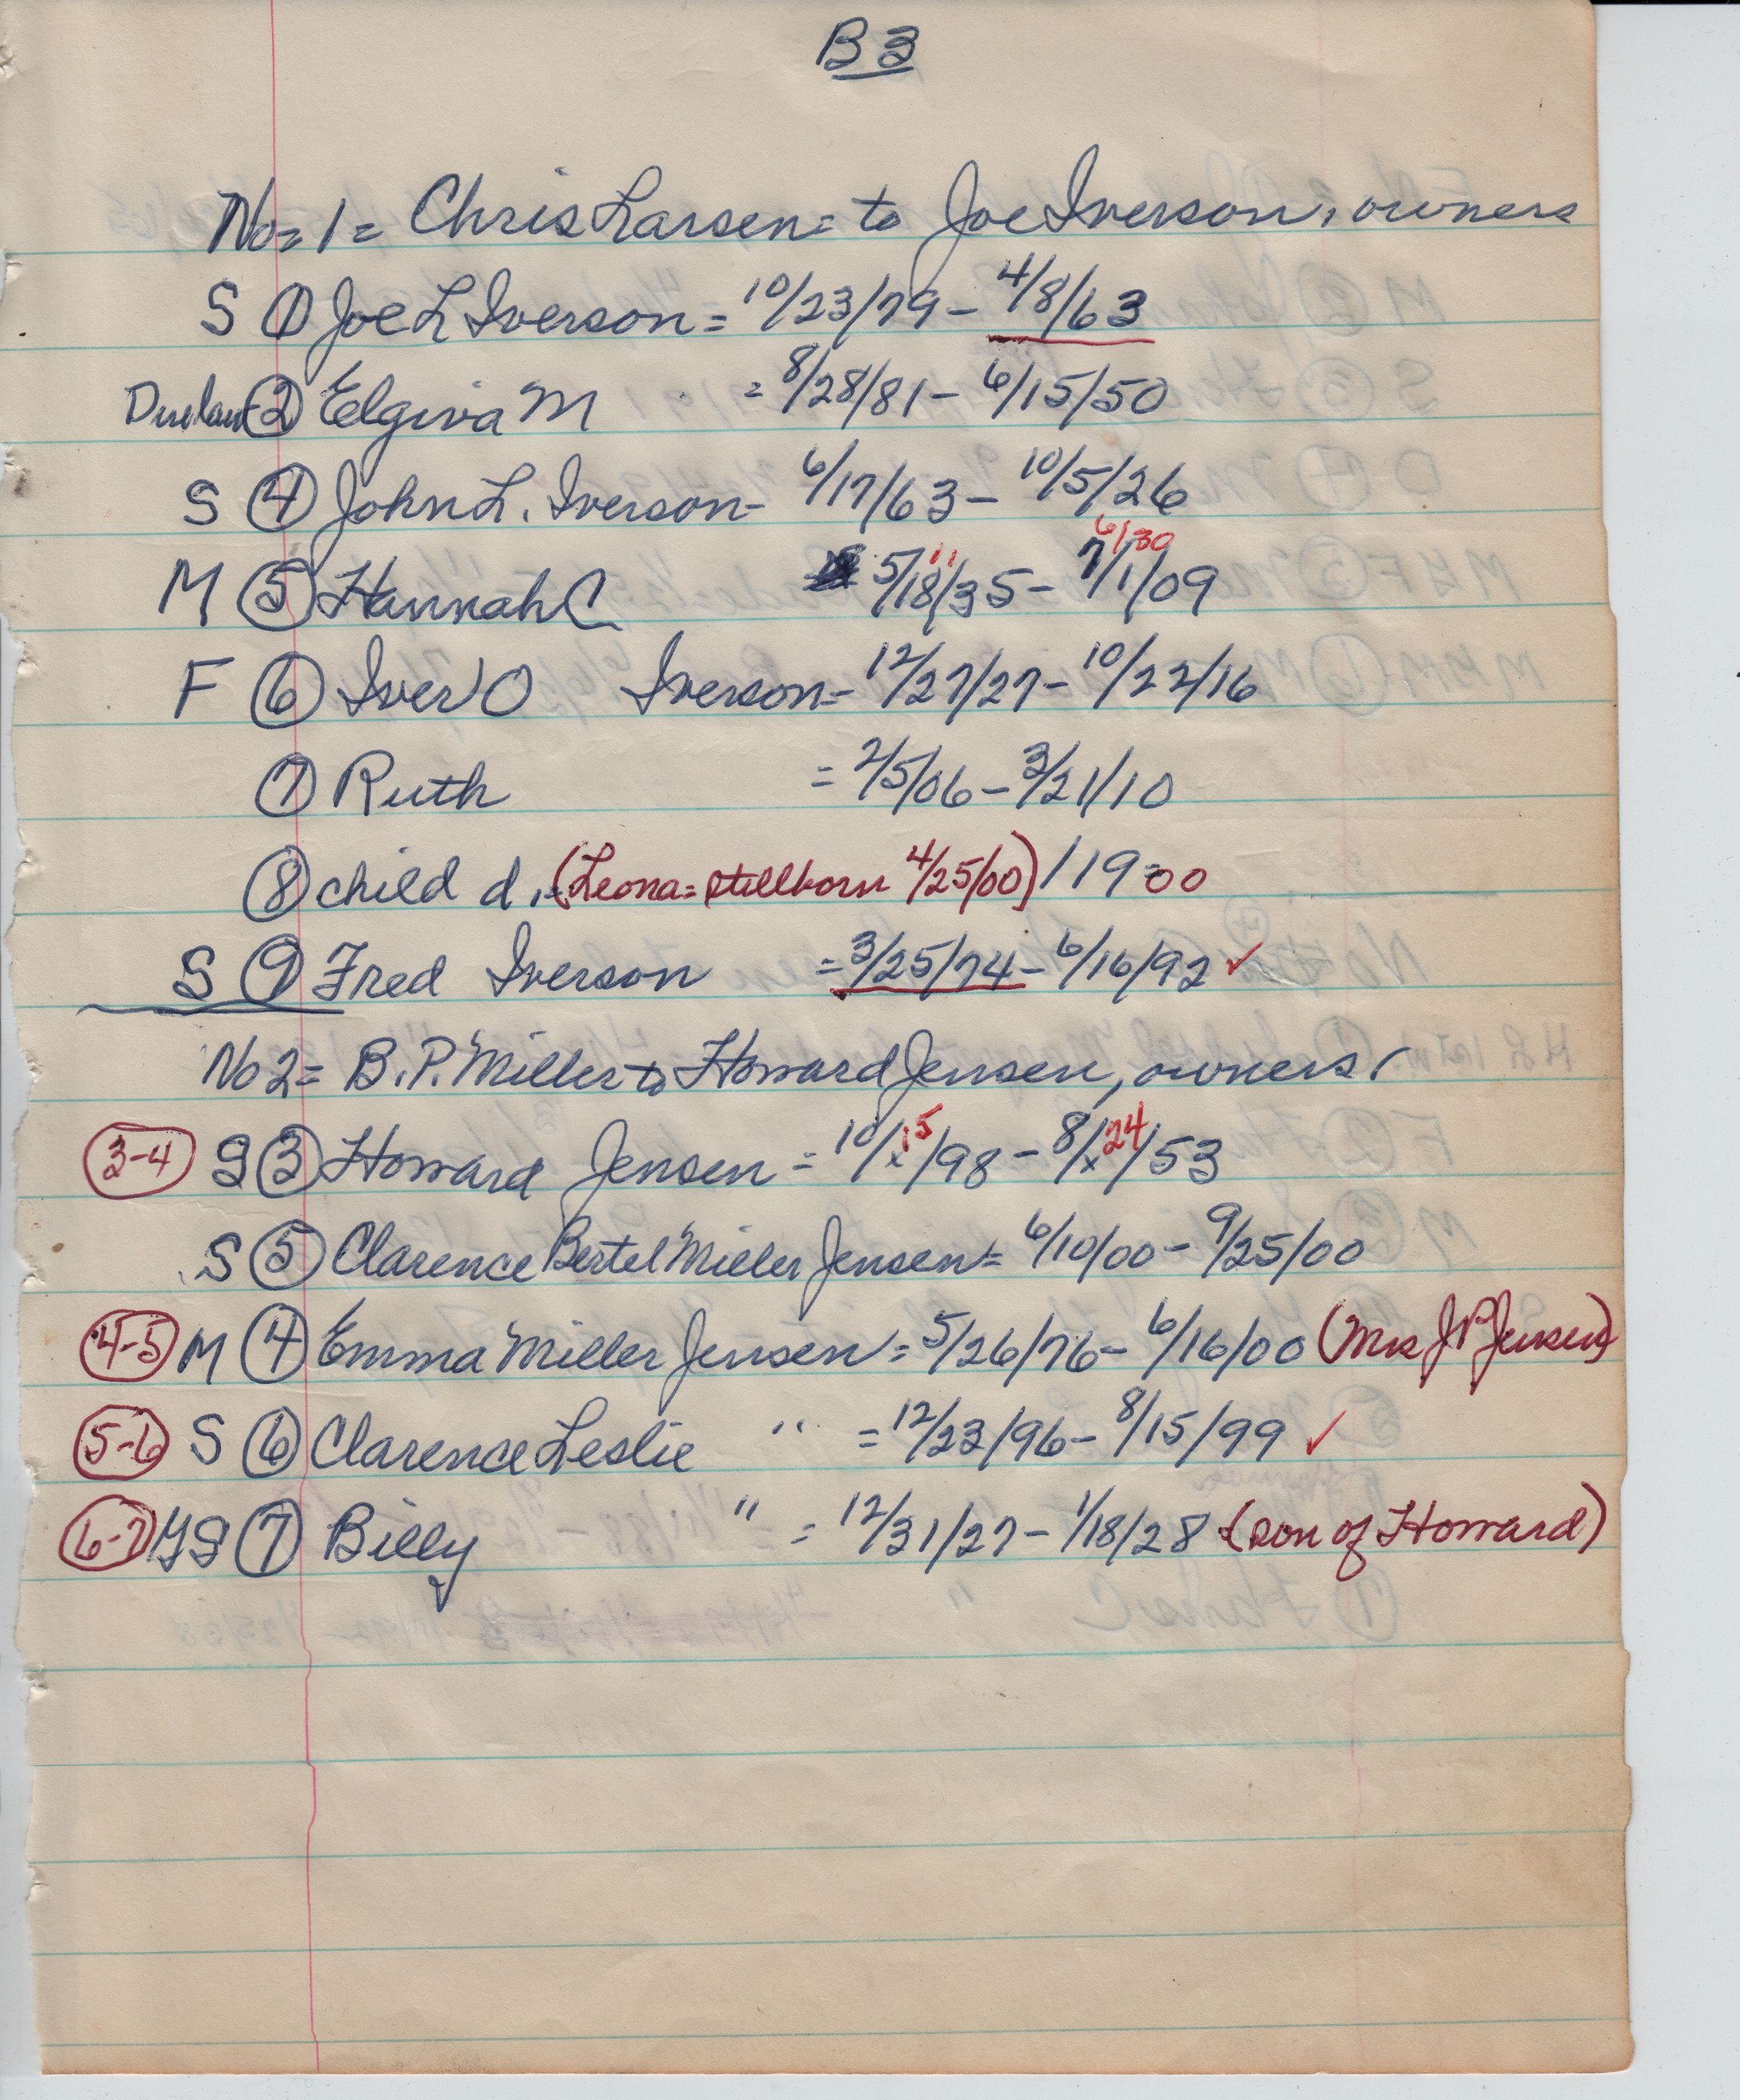 B3
No=1= Chris Larsen= to Joe Iverson, owners
S ① Joe L Iverson = 10/23/79 - 4/8/63
② Elgiva M = 8/28/81 - 6/15/50
S ④ John L. Iverson - 6/17/63 - 10/5/26
6/30
M ⑤ Hannah C 5/18/35 - 7/1/09
F ⑥ Iver O Iverson = 12/27/27 - 10/22/16
⑦ Ruth = 2/5/06 - 3/21/10
⑧ child d. (Leona = stillborn 4/25/00) / 1900
S ⑨ Fred Iverson = 3/25/74 - 6/16/92 ✓
No 2 = B.P. Miller to Howard Jensen, owners
3-4 S ③ Howard Jensen = 10/x15/98 - 8/x24/53
S ⑤ Clarence Bertel Miller Jensen = 6/10/00 - 9/25/00
4-5 M ④ Emma Miller Jensen = 5/26/76 - 6/16/00 (Mrs J P Jensen)
5-6 S ⑥ Clarence Leslie " = 12/23/96 - 8/15/99 ✓
6-7 GS ⑦ Billy " = 12/31/27 - 1/18/28 (son of Howard)